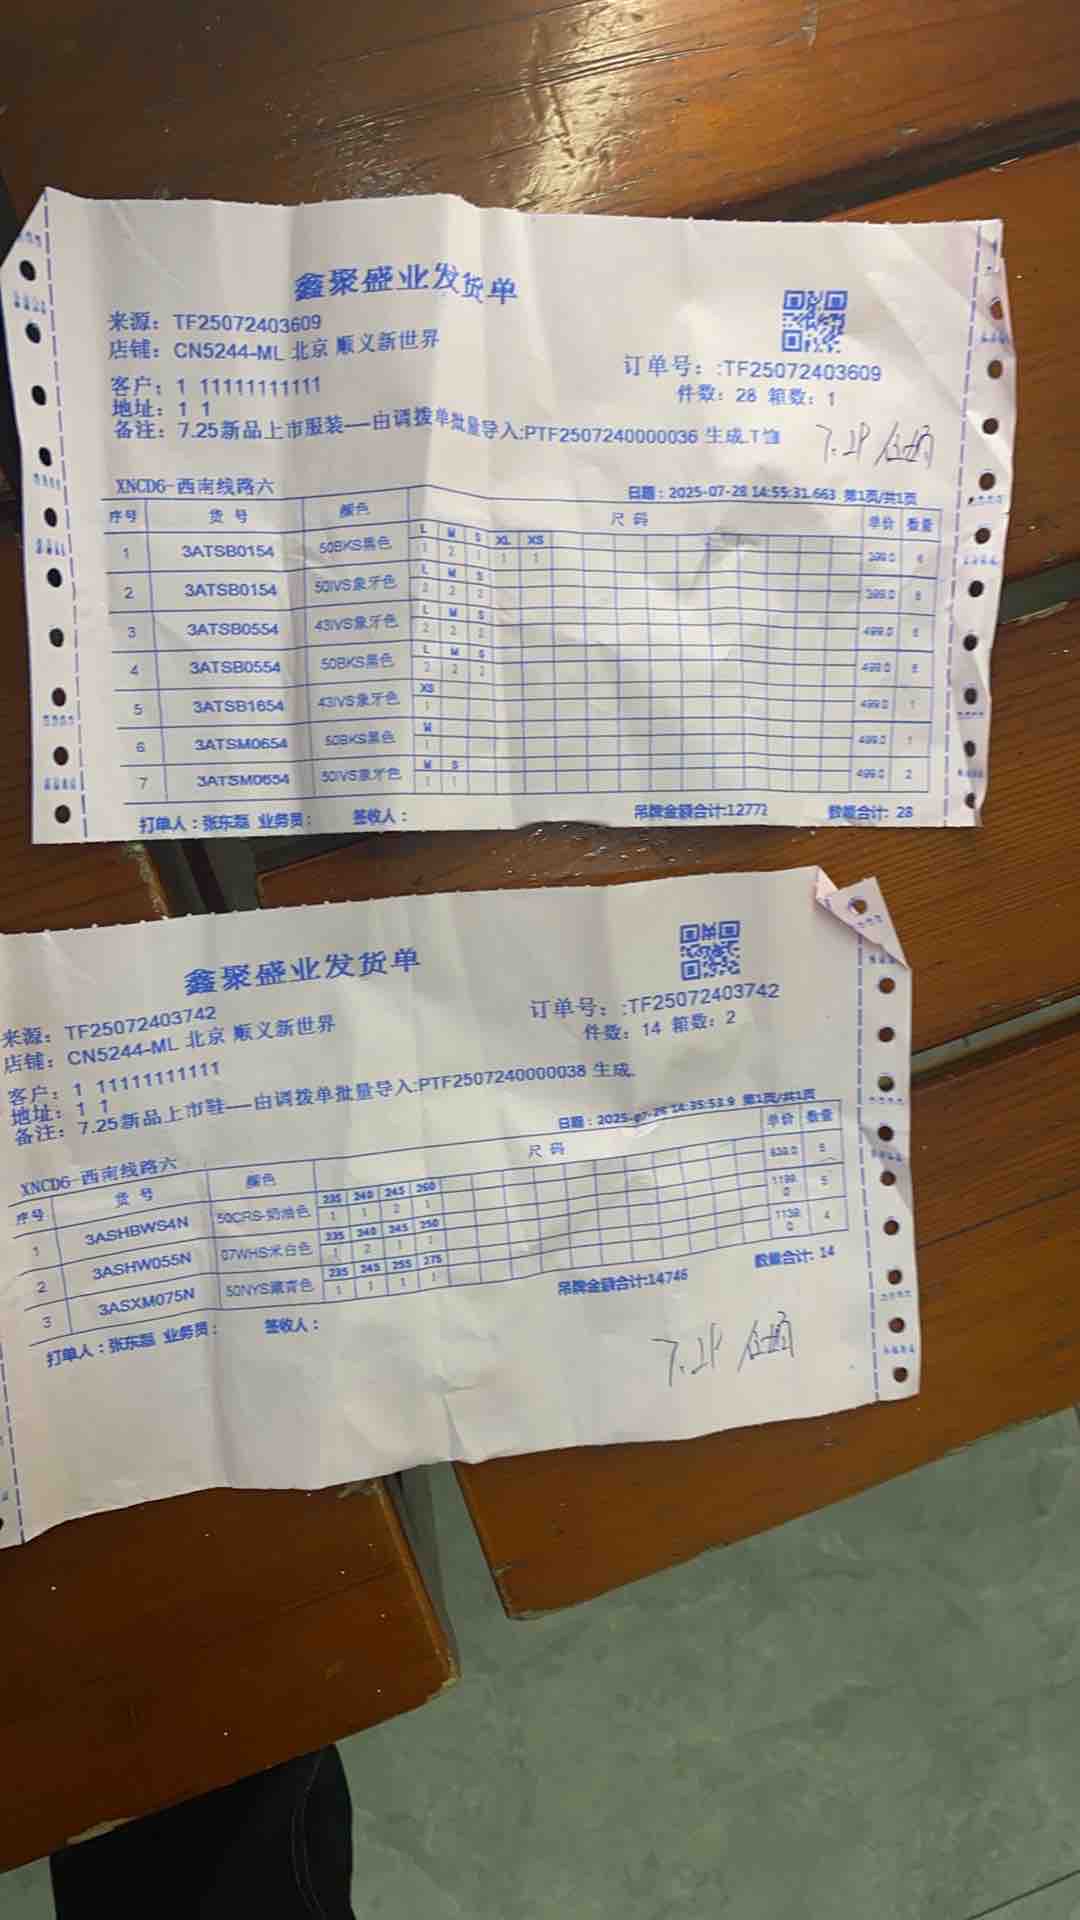 鑫聚盛业发货单
来源：TF25072403609
店铺：CN5244-ML 北京 顺义新世界
订单号：:TF25072403609
客户：1 11111111111
件数：28 箱数：1
地址：1 1
备注：7.25新品上市服装——由调拨单批量导入:PTF2507240000036 生成.T恤
XNCD6-西南线路六
日期：2025-07-28 14:55:31.663 第1页/共1页
序号 货号 颜色 尺码 单价 数量
L M S XL XS
1 3ATSB0154 50BKS黑色 1 2 1 1 1 399.0 6
L M S
2 3ATSB0154 50IVS象牙色 2 2 2 399.0 6
L M S
3 3ATSB0554 43IVS象牙色 2 2 2 499.0 6
L M S
4 3ATSB0554 50BKS黑色 2 2 2 499.0 6
XS
5 3ATSB1654 43IVS象牙色 1 499.0 1
M
6 3ATSM0654 50BKS黑色 1 499.0 1
M S
7 3ATSM0654 50IVS象牙色 1 1 499.0 2
打单人：张东磊 业务员： 签收人： 吊牌金额合计:12772 数量合计: 28
鑫聚盛业发货单
来源：TF25072403742
店铺：CN5244-ML 北京 顺义新世界
订单号：:TF25072403742
客户：1 11111111111
件数：14 箱数：2
地址：1 1
备注：7.25新品上市鞋——由调拨单批量导入:PTF2507240000038 生成.
XNCD6-西南线路六
日期：2025-07-26 14:35:53.9 第1页/共1页
序号 货号 颜色 尺码 单价 数量
235 240 245 250
1 3ASHBWS4N 50CRS-奶油色 1 1 2 1 5
235 240 245 250
2 3ASHW055N 07WHS米白色 1 2 1 1 1199.0 5
235 245 255 275
3 3ASXM075N 50NYS藏青色 1 1 1 1 1139.0 4
打单人：张东磊 业务员： 签收人： 吊牌金额合计:14746 数量合计: 14